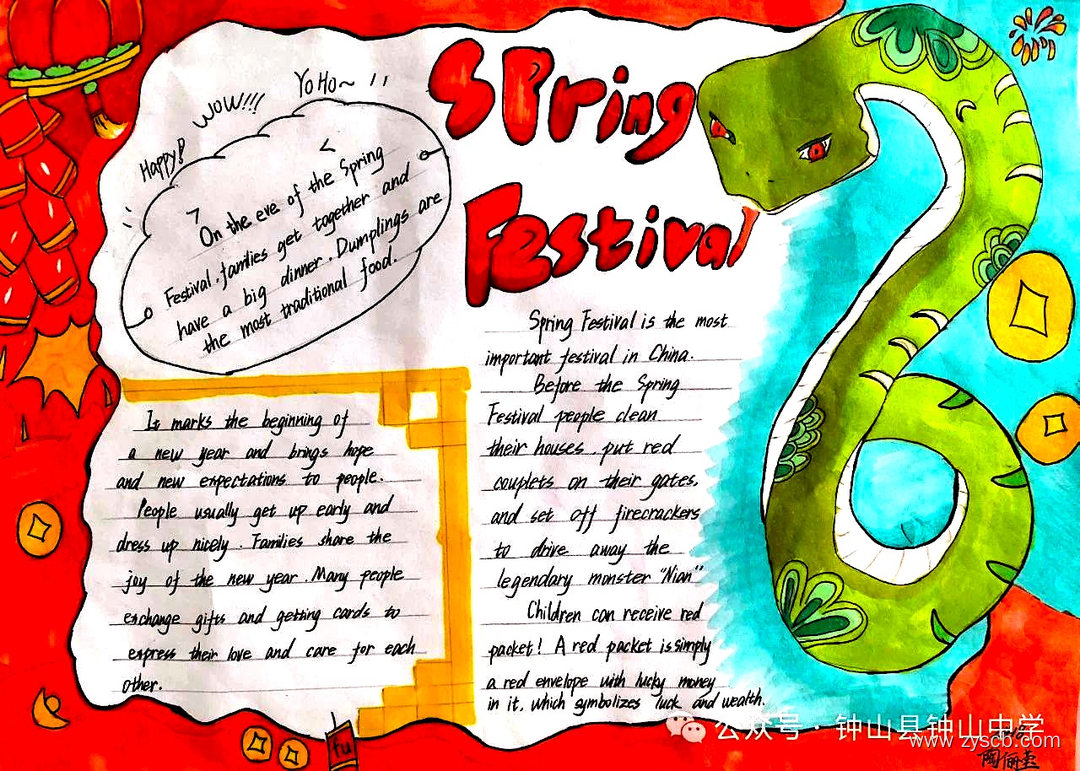 Spring
Festival
Happy!
WOW!!!
YoHo~
On the eve of the Spring
Festival, families get together and
have a big dinner. Dumplings are
the most traditional food.
It marks the beginning of
a new year and brings hope
and new expectations to people.
People usually get up early and
dress up nicely. Families share the
joy of the new year. Many people
exchange gifts and getting cards to
express their love and care for each
other.
Spring Festival is the most
important festival in China.
Before the Spring
Festival people clean
their houses, put red
couplets on their gates,
and set off firecrackers
to drive away the
legendary monster "Nian"
Children can receive red
packet! A red packet is simply
a red envelope with lucky money
in it, which symbolizes luck and wealth.
fu
公众号·钟山县钟山中学
www.zyscb.com